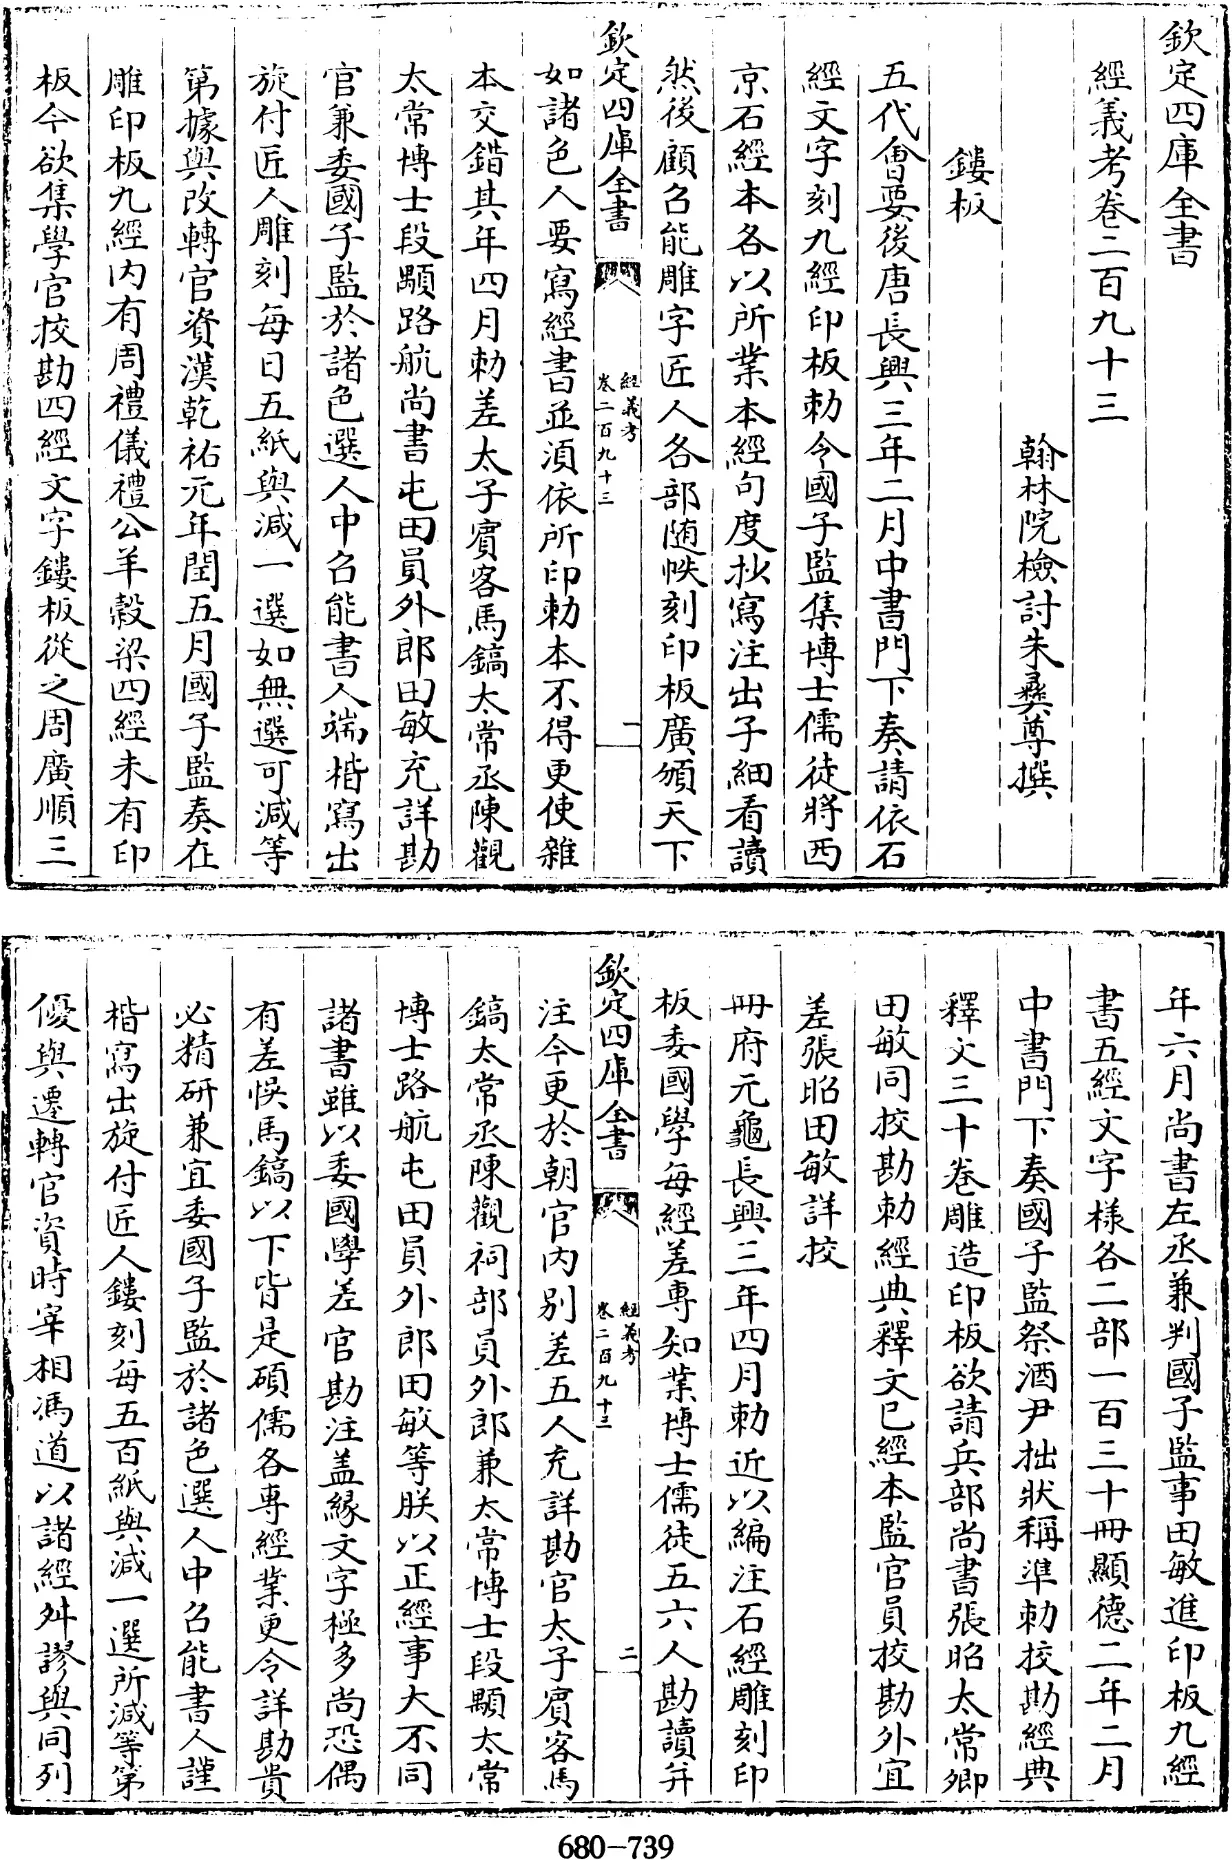 欽定四庫全書
經義考卷二百九十三
翰林院檢討朱彝尊撰
鏤板
五代會要後唐長興三年二月中書門下奏請依石
經文字刻九經印板勅令國子監集博士儒徒將西
京石經本各以所業本經句度抄寫注出子細看讀
然後顧召能雕字匠人各部随帙刻印板廣頒天下
欽定四庫全書
經義考
卷二百九十三
一
如諸色人要寫經書並湏依所印勅本不得更使雜
本交錯其年四月勅差太子賓客馬鎬太常丞陳觀
太常博士段顒路航尚書屯田員外郎田敏充詳勘
官兼委國子監於諸色選人中召能書人端楷寫出
旋付匠人雕刻每日五紙與減一選如無選可減等
第據與改轉官資漢乾祐元年閏五月國子監奏在
雕印板九經内有周禮儀禮公羊穀梁四經未有印
板今欲集學官校勘四經文字鏤板從之周廣順三
年六月尚書左丞兼判國子監事田敏進印板九經
書五經文字様各二部一百三十冊顯德二年二月
中書門下奏國子監祭酒尹拙狀稱準勅校勘經典
釋文三十卷雕造印板欲請兵部尚書張昭太常卿
田敏同校勘勅經典釋文已經本監官員校勘外宜
差張昭田敏詳校
冊府元龜長興三年四月勅近以編注石經雕刻印
板委國學每經差專知業博士儒徒五六人勘讀并
欽定四庫全書
經義考
卷二百九十三
二
注今更於朝官内别差五人充詳勘官太子賓客馬
鎬太常丞陳觀祠部員外郎兼太常博士段顒太常
博士路航屯田員外郎田敏等朕以正經事大不同
諸書雖以委國學差官勘注盖縁文字極多尚恐偶
有差悞馬鎬以下皆是碩儒各專經業更令詳勘貴
必精研兼宜委國子監於諸色選人中召能書人謹
楷寫出旋付匠人鏤刻每五百紙與減一選所減等第
優與遷轉官資時宰相馮道以諸經舛謬與同列
680-739